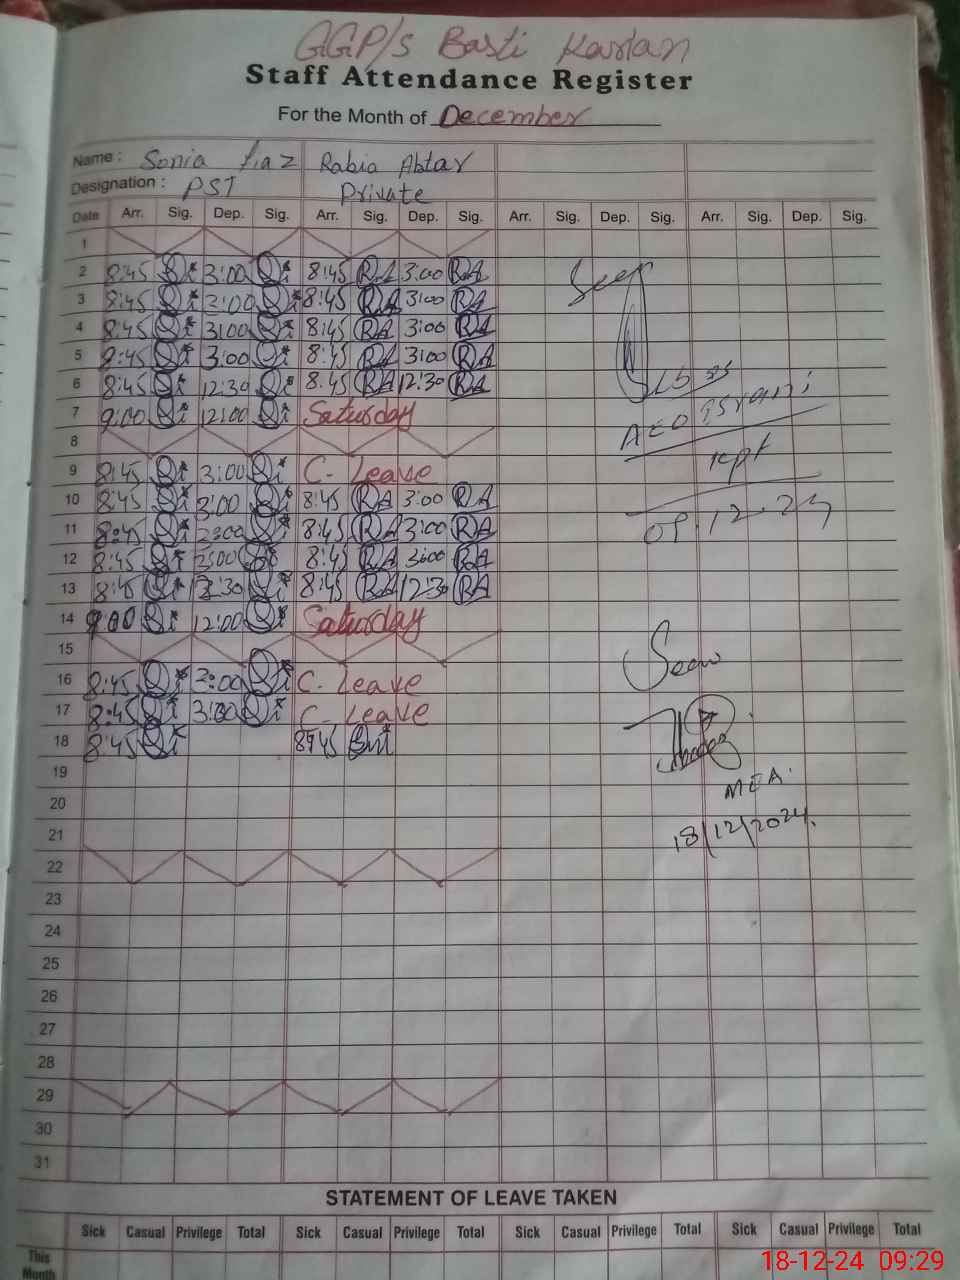 GGP/S Basti Karlan
Staff Attendance Register
For the Month of December
Name : Sonia Riaz Rabia Abtar
Designation : PST Private
Date Arr. Sig. Dep. Sig. Arr. Sig. Dep. Sig. Arr. Sig. Dep. Sig. Arr. Sig. Dep. Sig.
1
2 8:45 3:00 8:45 RA 3:00 RA
3 8:45 3:00 8:45 RA 3:00 RA
4 8:45 3:00 8:45 RA 3:00 RA
5 8:45 3:00 8:45 RA 3:00 RA
6 8:45 12:30 8:45 RA 12:30 RA
7 9:00 12:00 Saturday
8
9 8:45 3:00 C- Leave
10 8:45 3:00 8:45 RA 3:00 RA
11 8:45 3:00 8:45 RA 3:00 RA
12 8:45 3:00 8:45 RA 3:00 RA
13 8:45 12:30 8:45 RA 12:30 RA
14 9:00 12:00 Saturday
15
16 8:45 3:00 C- Leave
17 8:45 3:00 C- Leave
18 8:45 8:45
19
20
21
22
23
24
25
26
27
28
29
30
31
Seen
AEO
09.12.24
Seen
MEA.
18/12/2024.
STATEMENT OF LEAVE TAKEN
Sick Casual Privilege Total Sick Casual Privilege Total Sick Casual Privilege Total Sick Casual Privilege Total
This
Month
18-12-24 09:29